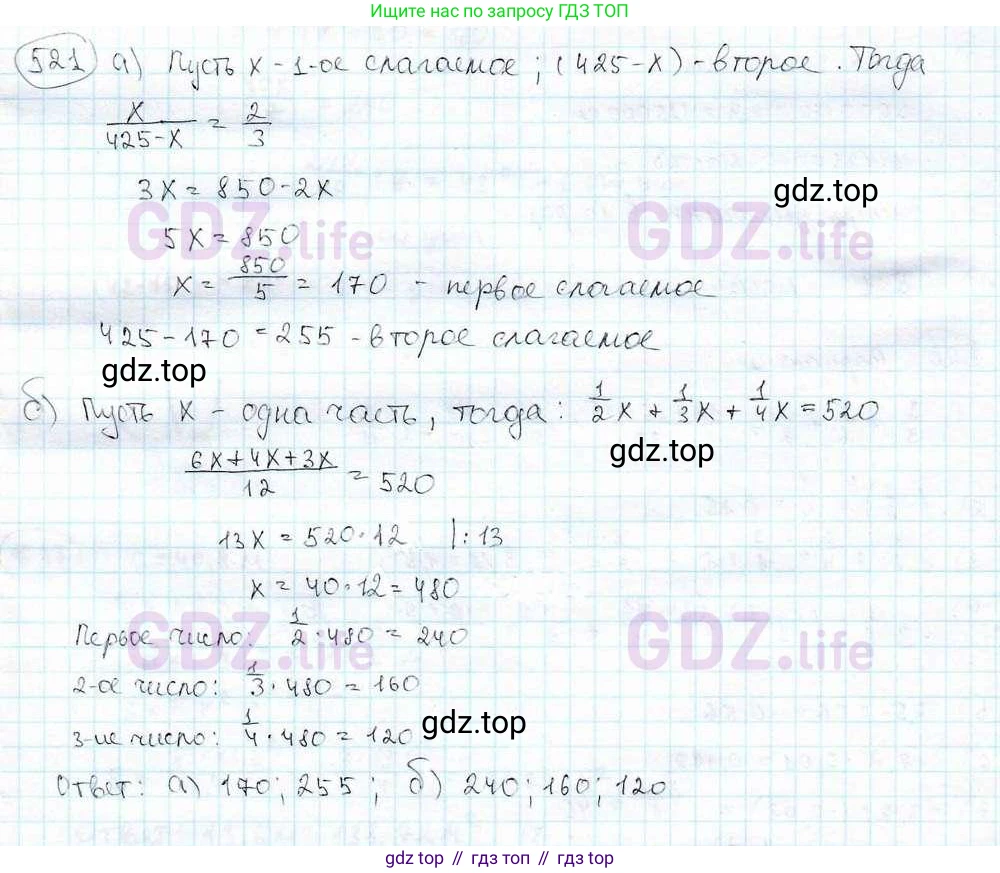 Ищите нас по запросу ГДЗ ТОП
521 а) Пусть x - 1-ое слагаемое ; (425-x) - второе . Тогда
x/(425-x) = 2/3
3x = 850-2x
gdz.top
GDZ.life GDZ.life
5x = 850
x = 850/5 = 170 - первое слагаемое
425-170 = 255 - второе слагаемое
gdz.top
б) Пусть x - одна часть, тогда: 1/2 x + 1/3 x + 1/4 x = 520
gdz.top
(6x+4x+3x)/12 = 520
13x = 520·12 |:13
x = 40·12 = 480
GDZ.life GDZ.life
Первое число: 1/2 · 480 = 240
2-ое число: 1/3 · 480 = 160
3-ие число: 1/4 · 480 = 120
gdz.top
Ответ: а) 170; 255 ; б) 240; 160; 120
gdz top // гдз топ // gdz top